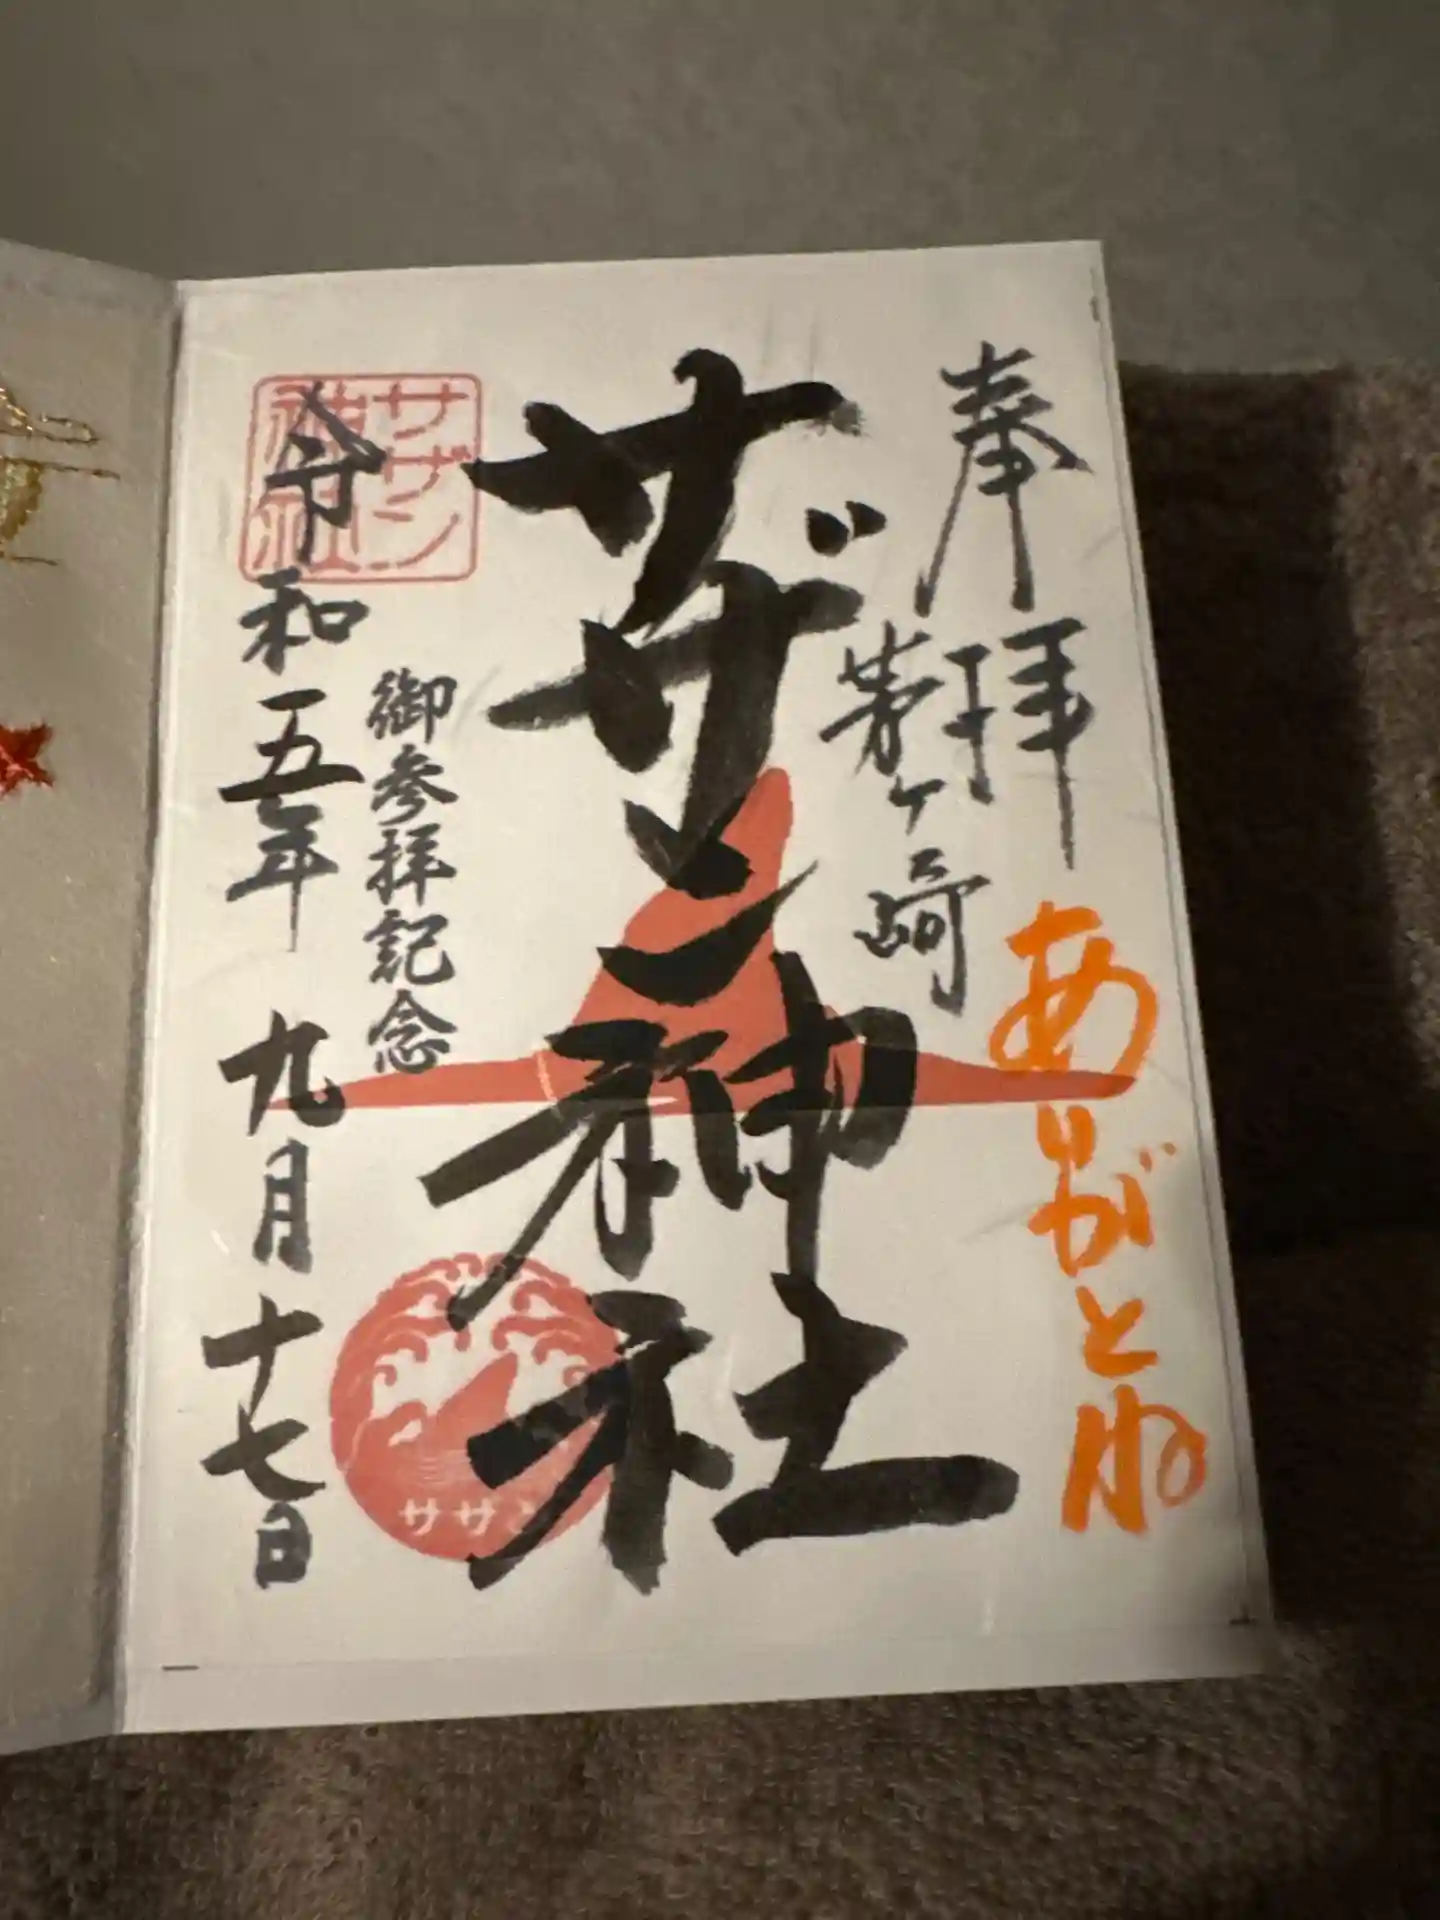 奉拝
茅ヶ崎
ありがとね
サザン神社
御参拝記念
令和五年 九月 十七日
サザン
神社
サザン